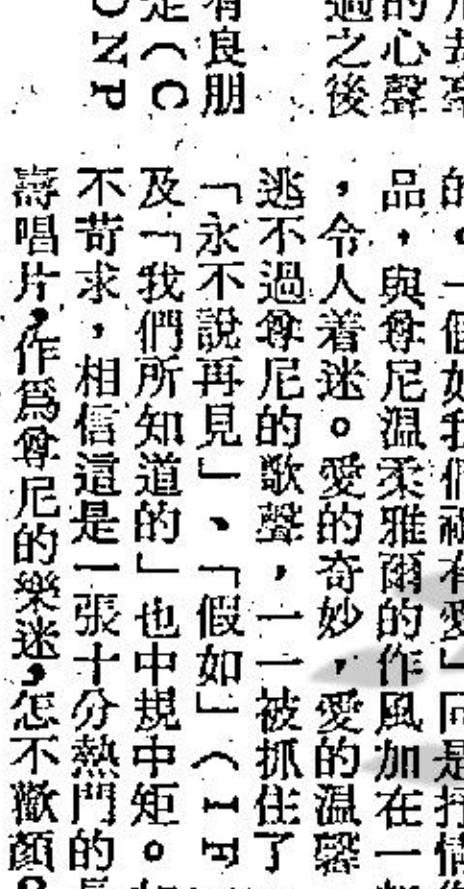 的心聲
過之後
有良朋
是（C
ONP
的。一個如我們祇有愛」同是抒情
品，與尊尼溫柔雅爾的作風加在一
，令人着迷。愛的奇妙，愛的溫馨
逃不過尊尼的歌聲，一一被抓住了
「永不說再見」、「假如」（IF
及「我們所知道的」也中規中矩。
不苛求，相信這是一張十分熱門的
壽唱片，作爲尊尼的樂迷，怎不歡顏